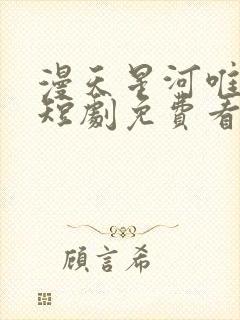 漫天星河唯
短劇免費看
顧言希